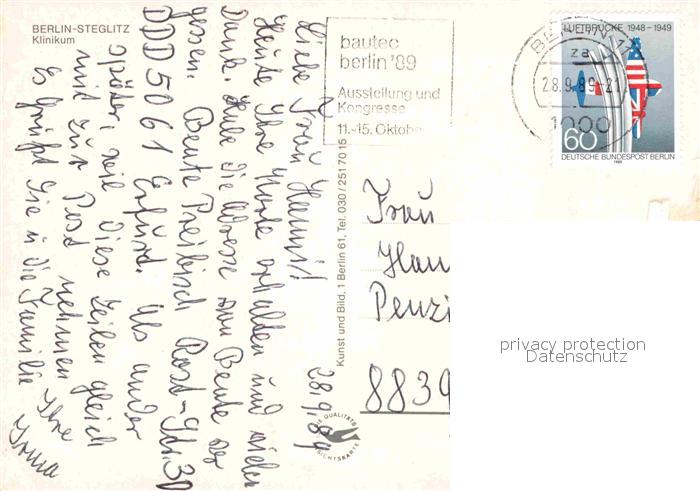 BERLIN-STEGLITZ
Klinikum
bautec
berlin '89
Ausstellung und
Kongresse
11.-15. Oktobe
BERLIN 11
za
28.9.89-21
1000
LUFTBRÜCKE 1948-1949
60
DEUTSCHE BUNDESPOST BERLIN
1989
28.9.89
Liebe Frau
Heute Ihre Karte erhalten und vielen
Dank. Habe die Adresse von Beute
gessen. Beute Preibisch Rost-Str. 30
DDD 5061 Erfurt. Als
später, wie diese Zeilen gleich
mit zur Post nehmen
Es grüßt Sie u die Familie
Ihre
Irma
Kunst und Bild, 1 Berlin 61, Tel. 030/2517015
QUALITÄTS
ANSICHTSKARTE
Frau
Han
Penzi
8839
privacy protection
Datenschutz